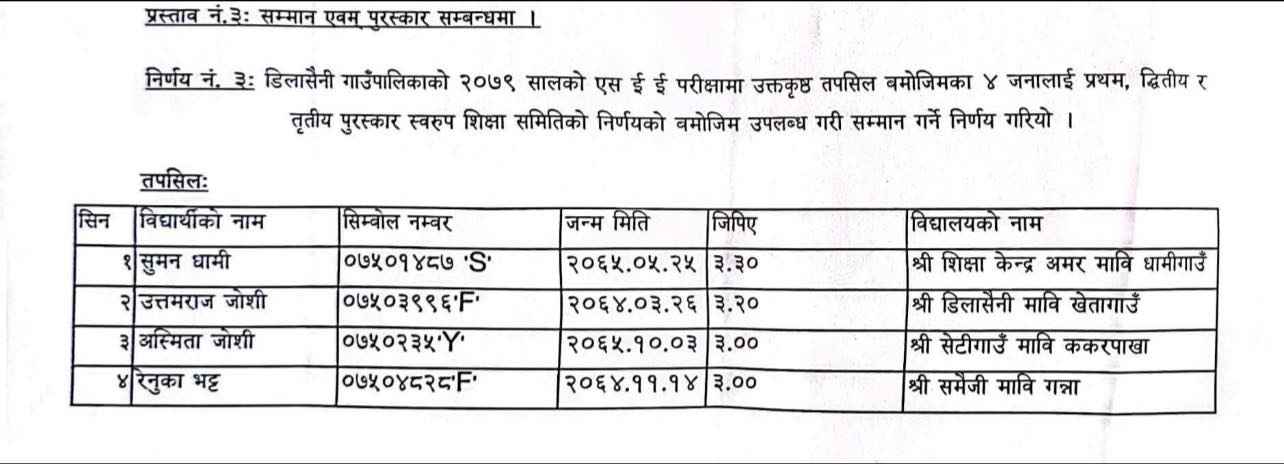 प्रस्ताव नं.३ः सम्मान एवम् पुरस्कार सम्बन्धमा ।
निर्णय नं. ३ः डिलासैनी गाउँपालिकाको २०७९ सालको एस ई ई परीक्षामा उक्तकृष्ठ तपसिल बमोजिमका ४ जनालाई प्रथम, द्धितीय र
तृतीय पुरस्कार स्वरुप शिक्षा समितिको निर्णयको बमोजिम उपलब्ध गरी सम्मान गर्ने निर्णय गरियो ।
तपसिलः
सिन विद्यार्थीको नाम सिम्वोल नम्वर जन्म मिति जिपिए विद्यालयको नाम
१ सुमन धामी ०७५०१४८७ 'S' २०६५.०५.२५ ३.३० श्री शिक्षा केन्द्र अमर मावि धामीगाउँ
२ उत्तमराज जोशी ०७५०३९९६'F' २०६४.०३.२६ ३.२० श्री डिलासैनी मावि खेतागाउँ
३ अस्मिता जोशी ०७५०२३५'Y' २०६५.१०.०३ ३.०० श्री सेटीगाउँ मावि ककरपाखा
४ रेनुका भट्ट ०७५०४८२८'F' २०६४.११.१४ ३.०० श्री समैजी मावि गन्ना